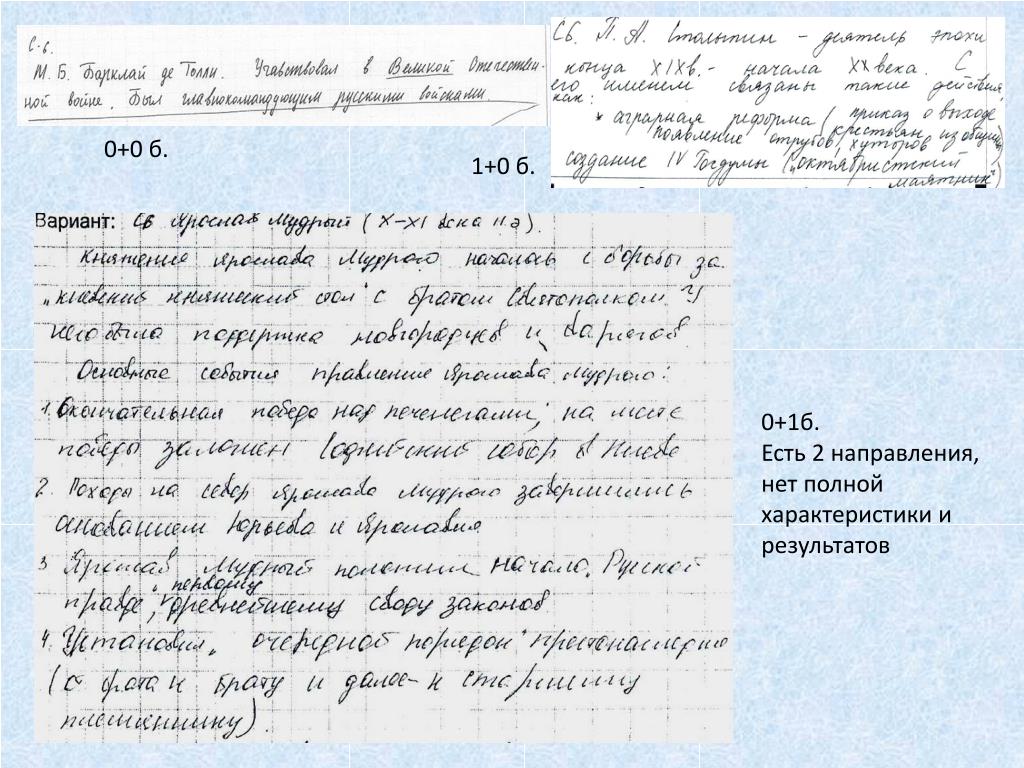 С-6.
М. Б. Барклай де Толли. Учавствовал в Великой Отечествен-
ной войне. Был главнокомандующим русскими войсками.
0+0 б.
С6. П. А. Столыпин – деятель эпохи
конца XIXв. - начала XX века. С
его именем связаны такие действия,
как:
* аграрная реформа (приказ о выходе
крестьян из общины,
появление отрубов, хуторов)
создание IV Госдумы ("октябристский
маятник")
1+0 б.
Вариант: С6 Ярослав Мудрый (X-XI века н.э).
Княжение Ярослава Мудрого началось с борьбы за
„киевский княжеский стол" с братом Святополком. У
него была поддержка новгородцев и варягов.
Основные события правления Ярослава Мудрого:
1. Окончательная победа над печенегами; на месте
победы заложен Софийский собор в Киеве
2. Походы на север Ярослава Мудрого завершились
основанием Юрьева и Ярославля
3 Ярослав Мудрый положил начало „Русской
правде", первому древнейшему своду законов.
4. Установил „очередной порядок" престонаследия
(от брата к брату и далее - к старшему
племяннику).
0+1б.
Есть 2 направления,
нет полной
характеристики и
результатов